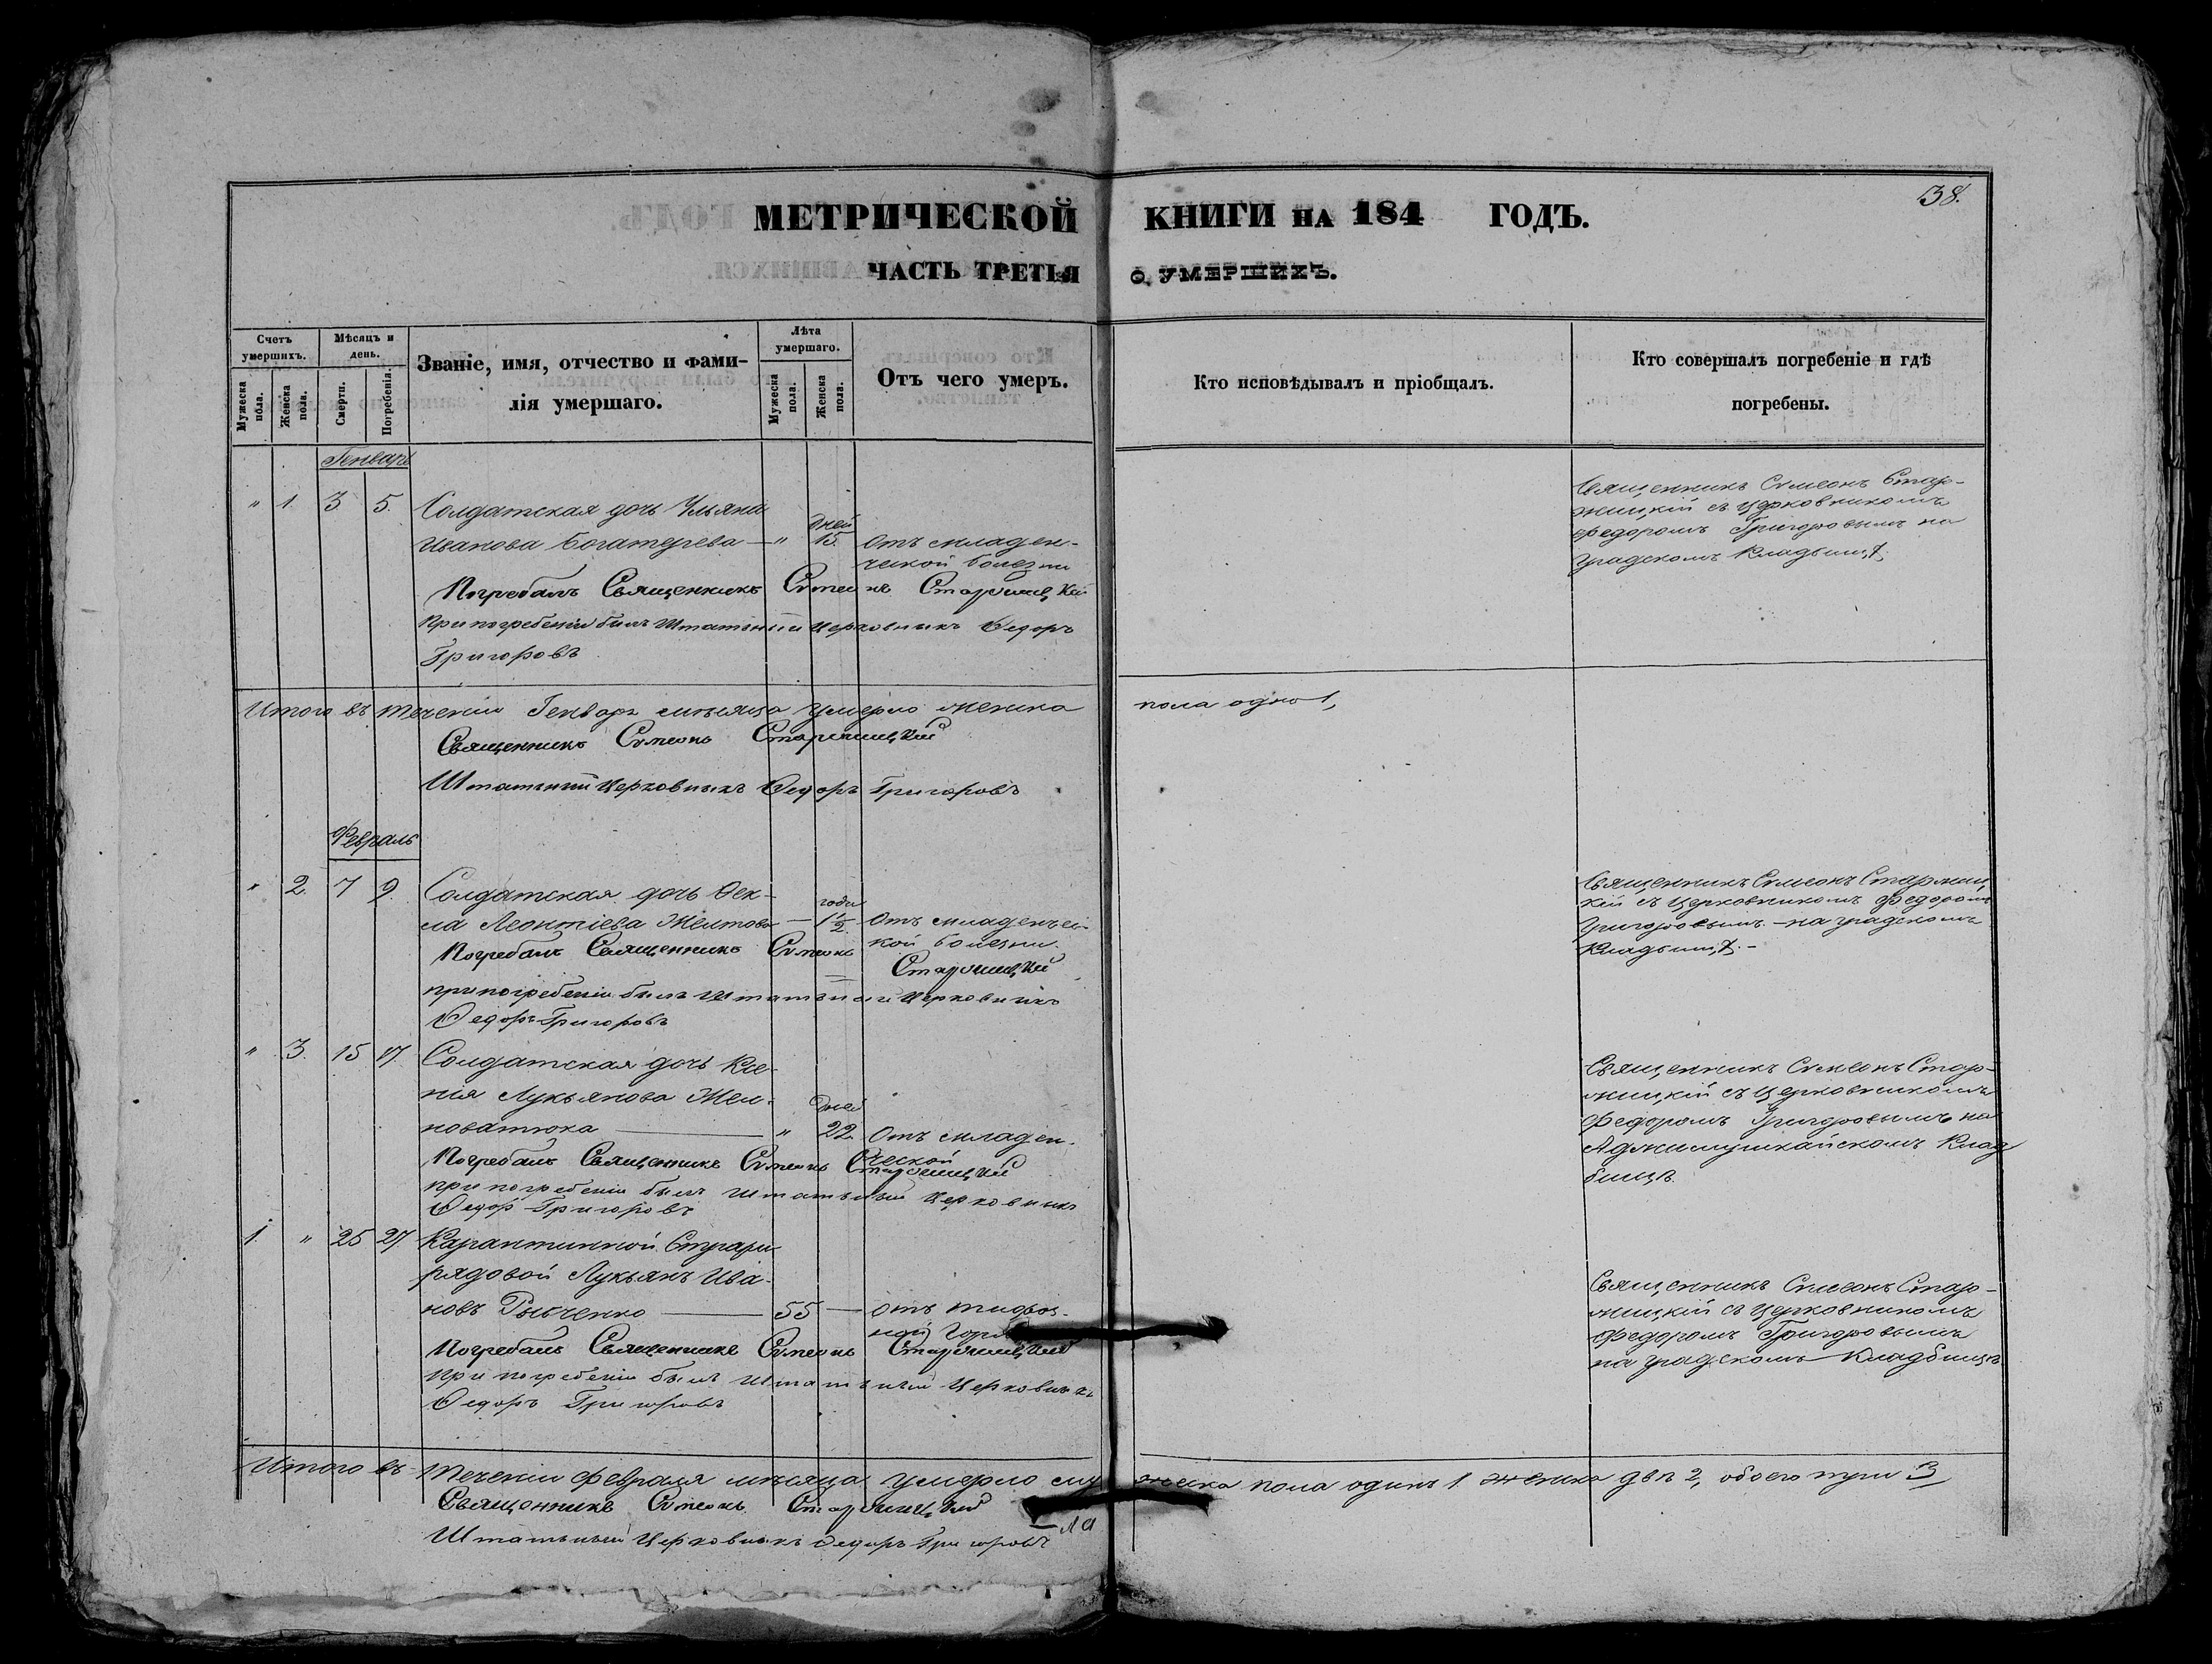 38.
МЕТРИЧЕСКОЙ КНИГИ НА 184 ГОДЪ.
ЧАСТЬ ТРЕТЬЯ О УМЕРШИХЪ.
Счетъ умершихъ.
Мужеска пола.
Женска пола.
Мѣсяцъ и день.
Смерти.
Погребенія.
Званіе, имя, отчество и фами-
лія умершаго.
Лѣта умершаго.
Мужеска пола.
Женска пола.
Отъ чего умеръ.
Кто исповѣдывалъ и пріобщалъ.
Кто совершалъ погребеніе и гдѣ
погребены.
Генварь
" 1. 3 5. Солдатская дочь Ульяна
Иванова — " дней 15. Отъ младен-
ческой болезни
Погребалъ Священникъ Симеонъ Старжицкій
При погребеніи былъ Штатный Церковникъ Федоръ
Григоровъ
Священникъ Симеонъ Стар-
жицкій съ церковникомъ
Федоромъ Григоровымъ на
градскомъ Кладбищѣ.
Итого въ теченіи Генваря мѣсяца умерло женска пола одно 1,
Священникъ Симеонъ Старжицкій
Штатный Церковникъ Федоръ Григоровъ
Февраль
" 2. 7 9. Солдатская дочь Фек-
ла Леонтіева Желтова — года 1½. Отъ младенчес-
кой болезни.
Погребалъ Священникъ Симеонъ Старжицкій
при погребеніи былъ Штатный Церковникъ
Федоръ Григоровъ
Священникъ Симеонъ Старжиц-
кій съ Церковникомъ Федоромъ
Григоровымъ – на градскомъ
Кладбищѣ. –
" 3. 15 17. Солдатская дочь Ксе-
нія Лукьянова Жел-
новатюка — " дней 22. Отъ младен-
ческой
Погребалъ Священникъ Симеонъ Старжицкій
при погребеніи былъ Штатный Церковникъ
Федоръ Григоровъ
Священникъ Симеонъ Стар-
жицкій съ Церковникомъ
Федоромъ Григоровымъ на
Аджимушкайскомъ Клад
бищѣ.
1. " 25 27 Карантинной Стражи
рядовой Лукьянъ Ива-
новъ Рыбченко — 55 — Отъ
Погребалъ Священникъ Симеонъ Старжицкій
При погребеніи былъ Штатный Церковникъ
Федоръ Григоровъ
Священникъ Симеонъ Стар-
жицкій съ Церковникомъ
Федоромъ Григоровымъ
на градскомъ Кладбищѣ
Итого въ теченіи Февраля мѣсяца умерло мужеска пола одинъ 1. женска двѣ 2, обоего 3
Священникъ Симеонъ Старжицкій
Штатный Церковникъ Федоръ Григоровъ